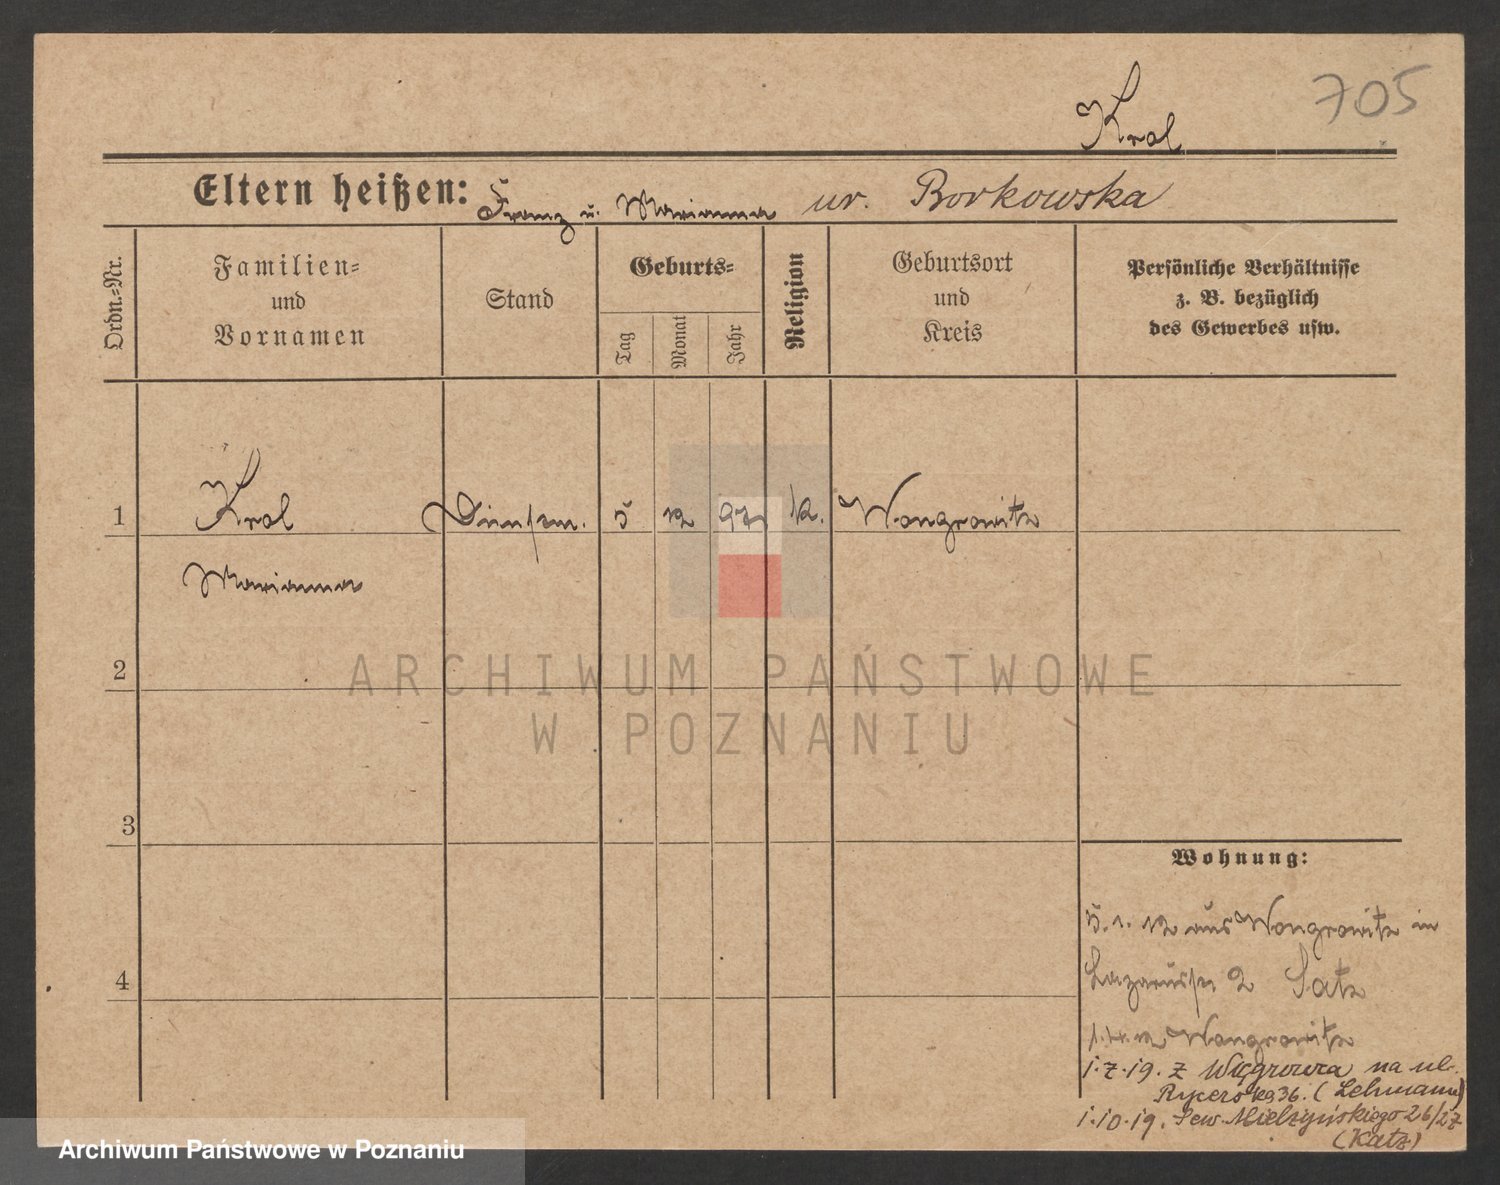 705
Kral
Eltern heißen: Franz u. Marianna ur. Borkowska
Ordn.=Nr.
Familien=
und
Vornamen
Stand
Geburts=
Tag
Monat
Jahr
Religion
Geburtsort
und
Kreis
Persönliche Verhältnisse
z. B. bezüglich
des Gewerbes usw.
1 Kral 5 12 97 k. Wongrowitz
Marianna
2
ARCHIWUM PAŃSTWOWE
W POZNANIU
3
4
Wohnung:
5. 1. 12 aus Wongrowitz in
Lazarusstr. 2
Wongrowitz
1.7.19. z Węgrowca na ul.
Rycerska 36. (Lehmann)
1.10.19. Sew. Mielzyńskiego 26/27
(Katz)
Archiwum Państwowe w Poznaniu